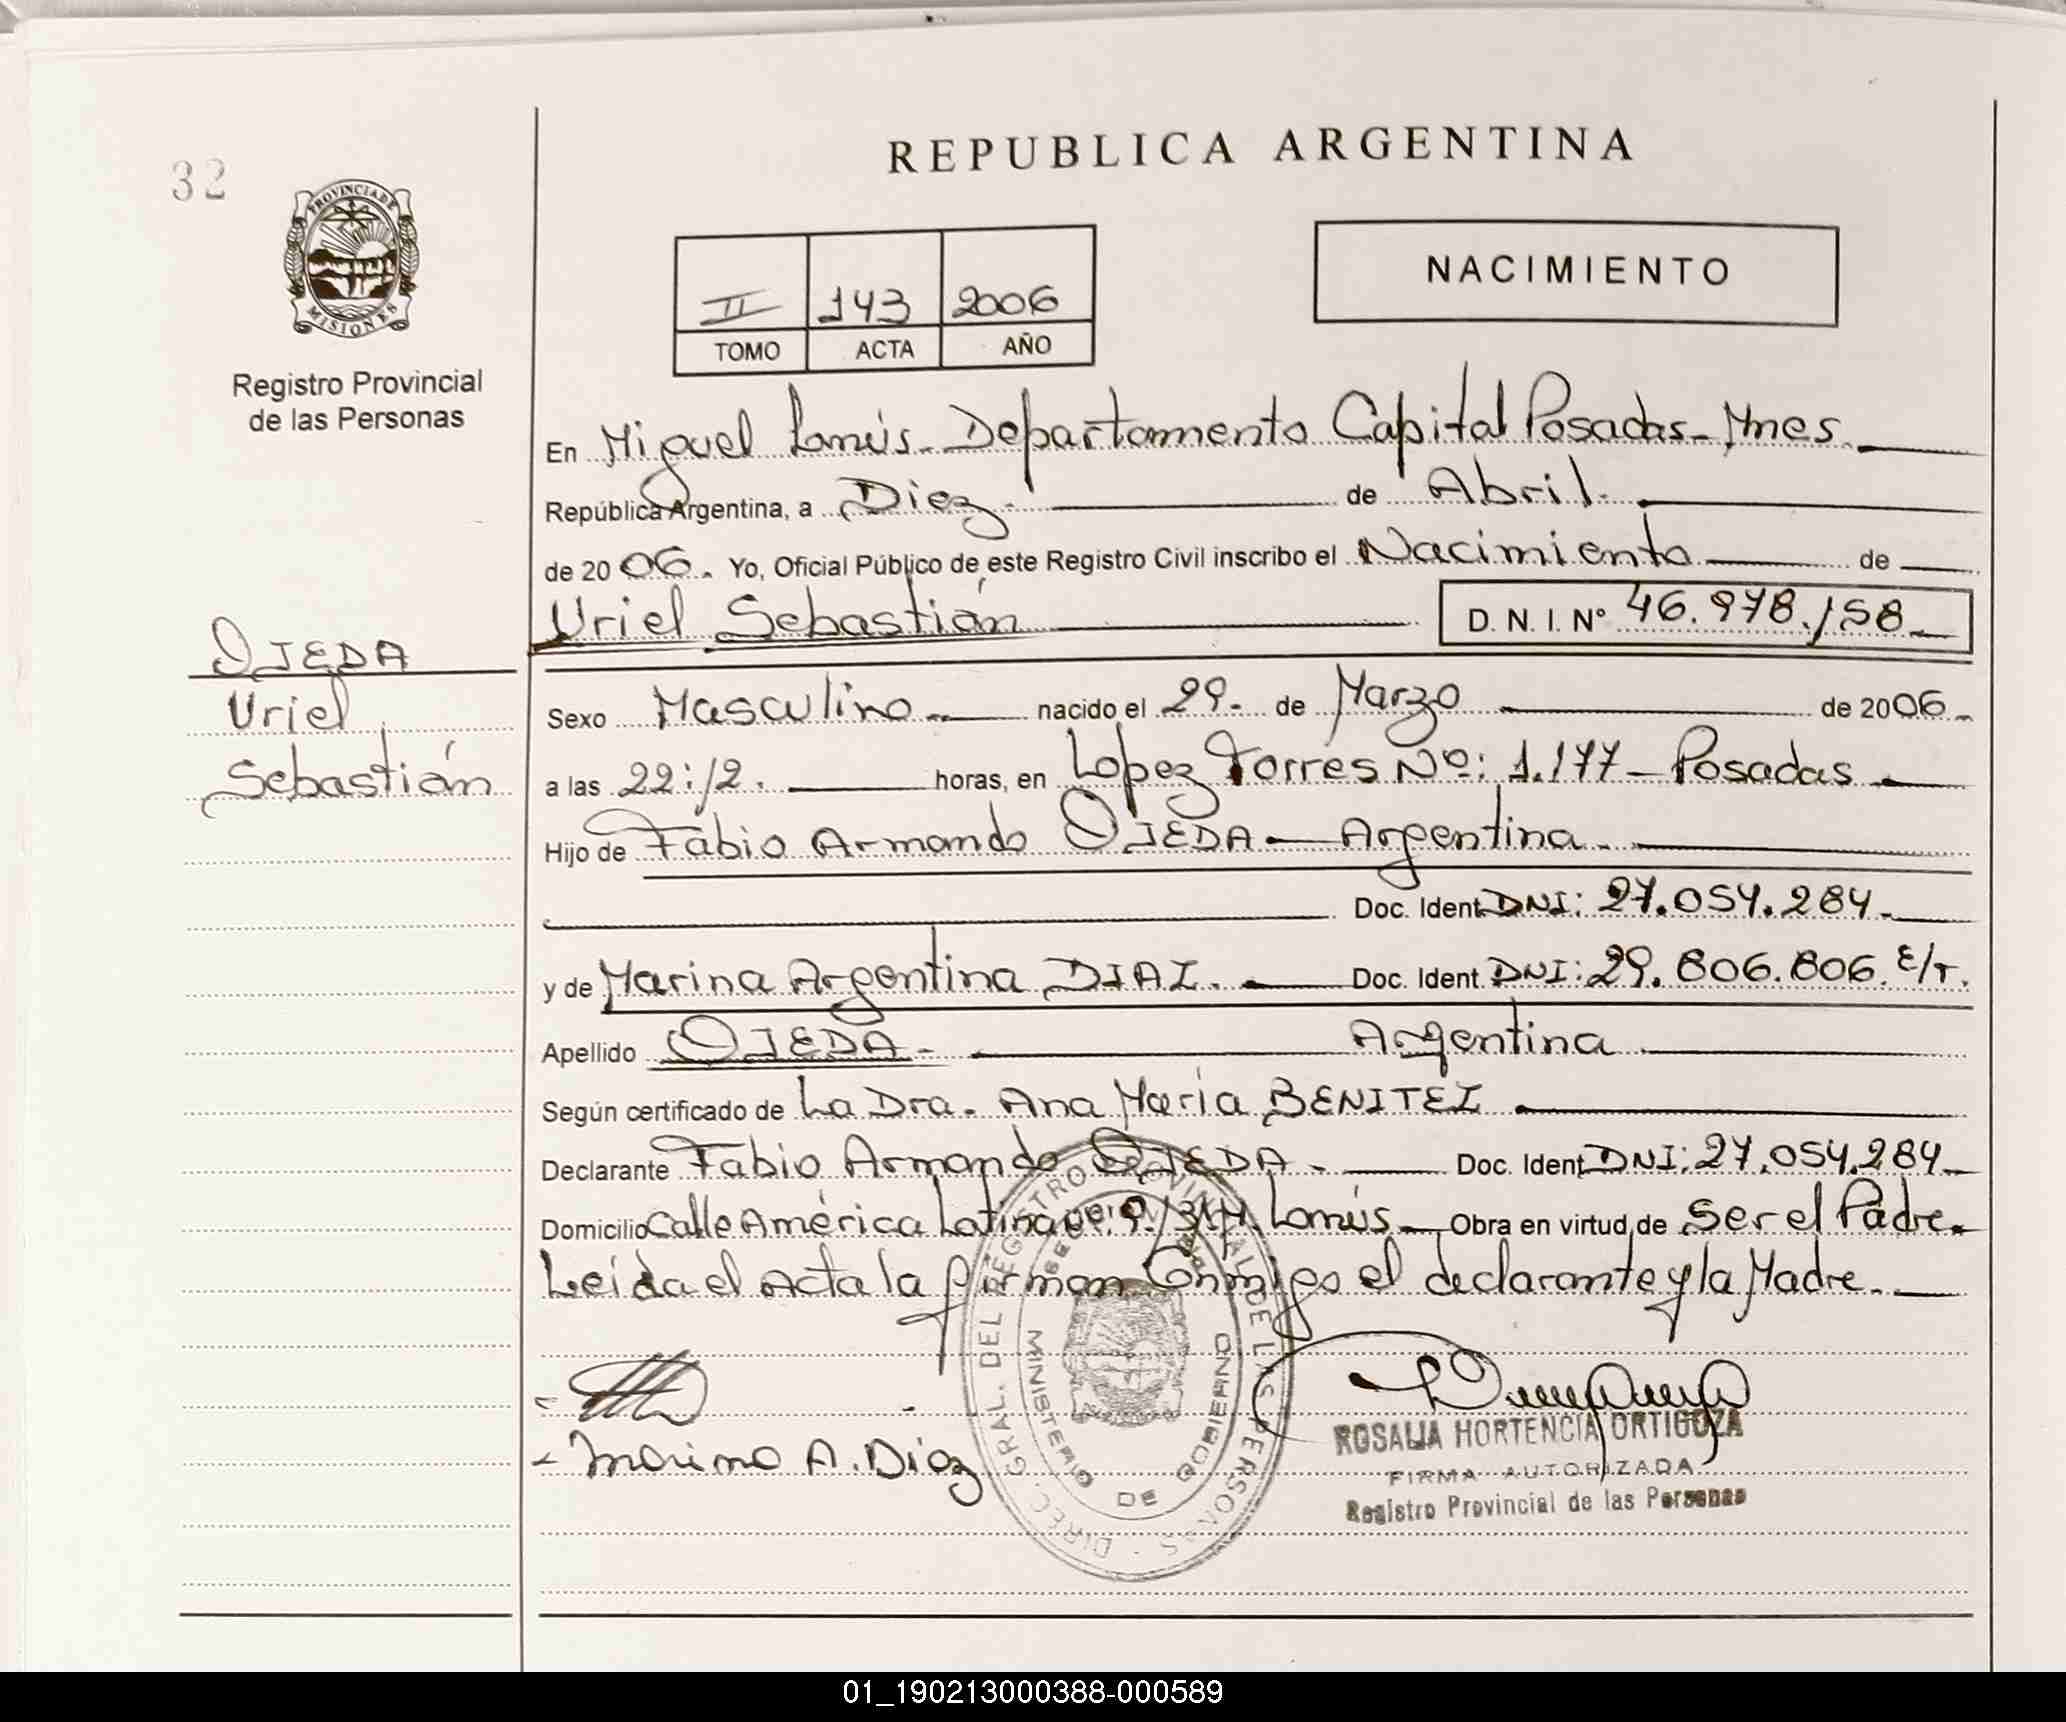 REPUBLICA ARGENTINA
32
PROVINCIA DE
MISIONES
Registro Provincial
de las Personas
NACIMIENTO
II 143 2006
TOMO ACTA AÑO
En Miguel Lanús - Departamento Capital Posadas - Mnes.
República Argentina, a Diez. de Abril.
de 2006. Yo, Oficial Público de este Registro Civil inscribo el Nacimiento de
Uriel Sebastián D. N. I. Nº 46.978.158
OJEDA
Uriel
Sebastián
Sexo Masculino nacido el 29. de Marzo de 2006
a las 22:12. horas, en Lopez Torres Nº: 1.177 - Posadas
Hijo de Fabio Armando OJEDA - Argentina.
Doc. Ident. DNI: 27.054.284.
y de Marina Argentina DIAZ. Doc. Ident. DNI: 29.806.806. E/T.
Apellido OJEDA. Argentina
Según certificado de La Dra. Ana María BENITEZ
Declarante Fabio Armando OJEDA. Doc. Ident. DNI: 27.054.284
Domicilio Calle América Latina Lanús. Obra en virtud de Ser el Padre.
Leída el Acta la firman Conmigo el declarante y la Madre.
Marina A. Diaz
DIREC. GRAL. DEL REGISTRO PROVINCIAL DE LAS PERSONAS
MINISTERIO DE GOBIERNO
ROSALIA HORTENCIA ORTIGOZA
FIRMA AUTORIZADA
Registro Provincial de las Personas
01_190213000388-000589